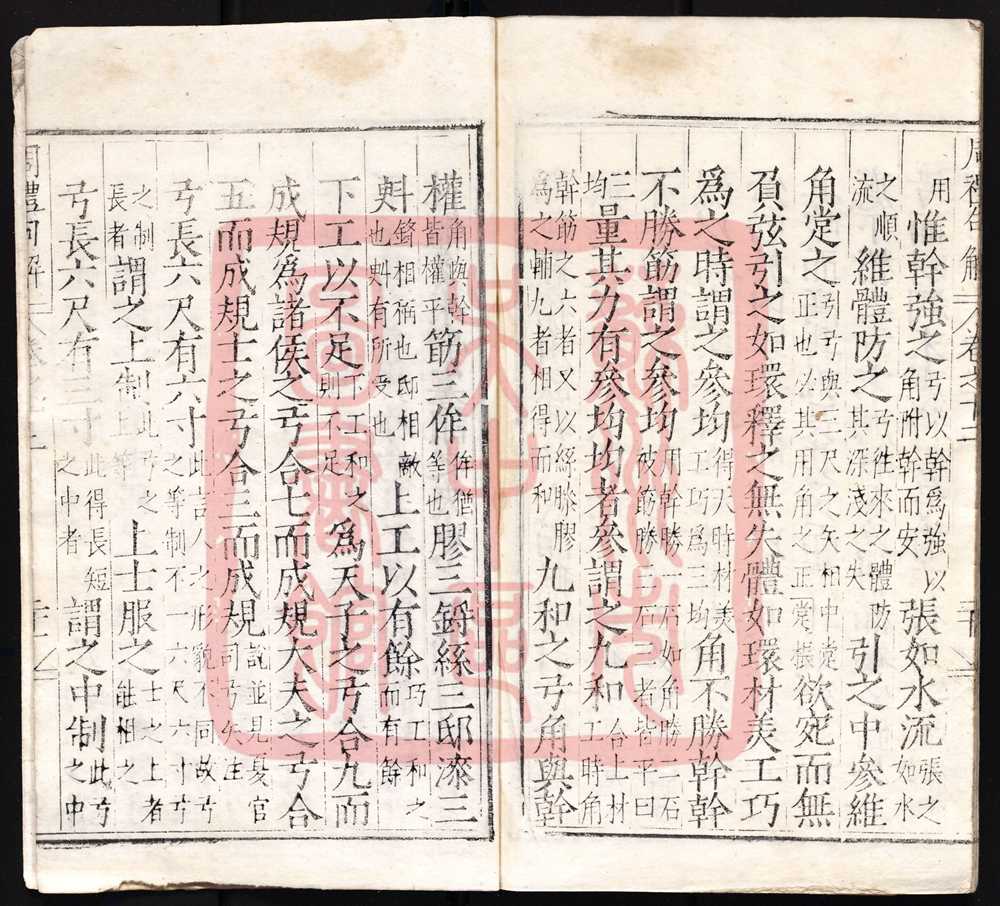 周禮句解 卷之十二
用惟幹強之弓以幹為強以角附幹而安張如水流張之如水
之順流維體防之弓往來之體防其深淺之失引之中參維
角堂之引弓與三尺之矢相中堂正也必其用角之正堂張欲宛而無
負弦引之如環釋之無失體如環材美工巧
為之時謂之參均得天時材美工巧為三均角不勝幹幹
不勝筋謂之參均用幹勝一石如角勝二石被筋勝三石三者皆平曰
三均量其力有參均均者參謂之九和合上材工時角
幹筋之六者又以絲漆膠為之輔九者相得而和九和之弓角與幹
權角與幹皆權平筋三侔侔猶等也膠三鋝絲三邸漆三
㪺鋝相稱也邸相敵也㪺有所受也上工以有餘巧工和之而有餘
下工以不足工和之則不足為天子之弓合九而
成規為諸侯之弓合七而成規大夫之弓合
五而成規士之弓合三而成規說並見夏官司弓矢注
弓長六尺有六寸此言人之形貌不同故弓之等制不一六尺六寸弓
之制長者謂之上制此弓之上等上士服之士之上者能相之
弓長六尺有三寸此得長短之中者謂之中制此弓之中
周禮句解